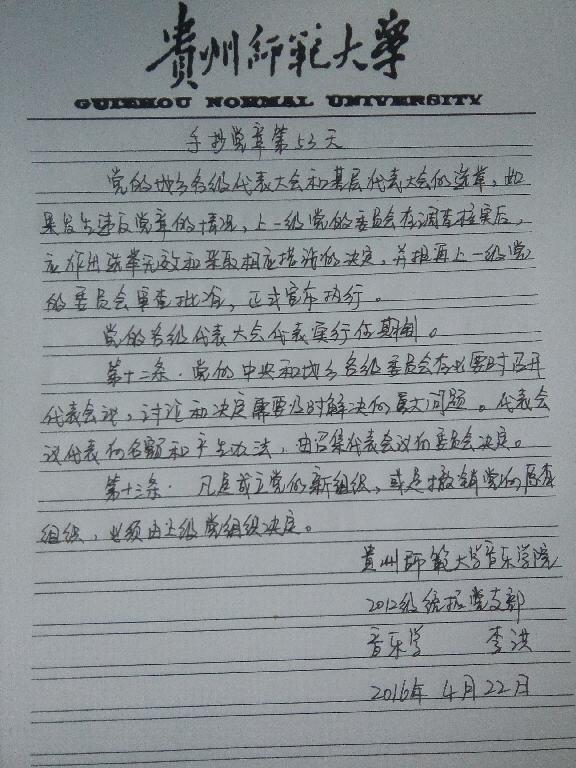 貴州師範大學
GUIZHOU NORMAL UNIVERSITY
手抄党章第53天
党的地方各级代表大会和基层代表大会的选举,如
果发生违反党章的情况,上一级党的委员会在调查核实后,
应作出选举无效和采取相应措施的决定,并报再上一级党
的委员会审查批准,正式宣布执行。
党的各级代表大会代表实行任期制。
第十二条.党的中央和地方各级委员会在必要时召开
代表会议,讨论和决定需要及时解决的重大问题。代表会
议代表的名额和产生办法,由召集代表会议的委员会决定。
第十三条.凡是成立党的新组织,或是撤销党的原有
组织,必须由上级党组织决定。
贵州師範大学音乐学院
2012级统招党支部
音乐学 李洪
2016年4月22日